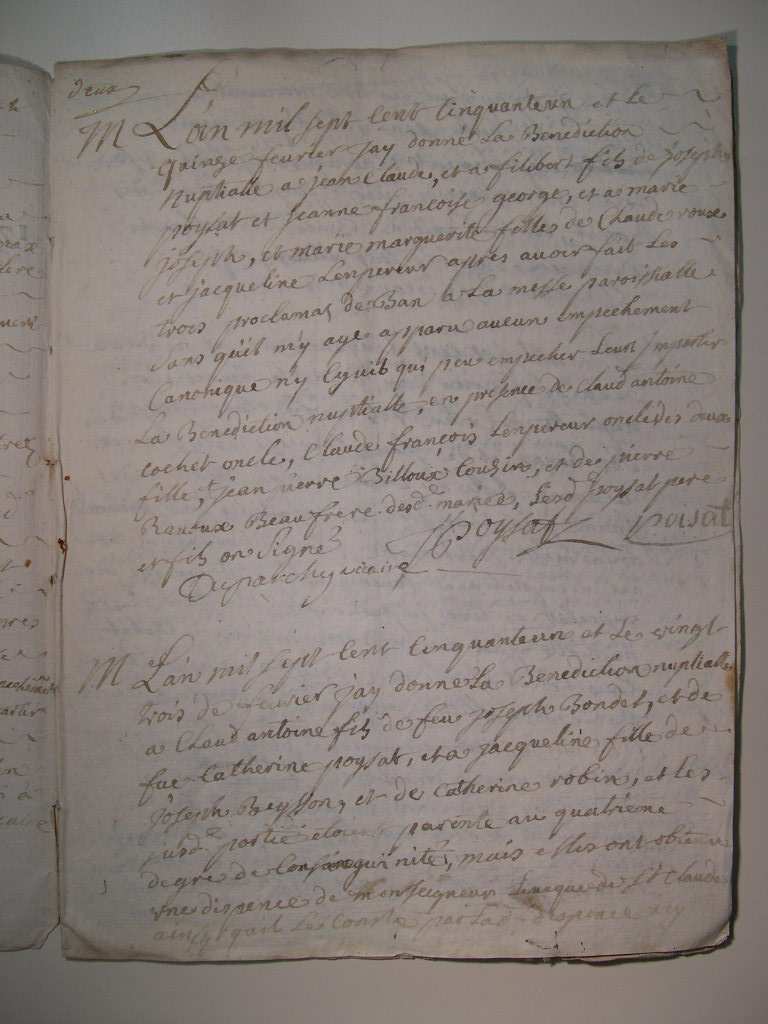 deux
M L'an mil sept cent cinquanteun et le
quinze fevrier jay donné La Benediction
nuptialle a jean Claude, et a filibert fils de joseph
poysat et jeanne francoise george, et a marie
joseph, et marie marguerite filles de Claude roux
et jacqueline Lenpereur apres avoir fait Les
trois proclamaõ de Ban a La messe paroissialle
sans quil n'y aye apparu aucun empechement
Canonique n'y Civil qui peu empecher Leur jmpartir
La Benediction nuptialle, en présence de Claud antoine
cochet oncle, Claude françois Lenpereur oncle des deux
fille, jean pierre Billoux Cousin, et de pierre
Beaufrere desd. mariés, poysat pere
et fils on signé
poysat poisat
vicaire
M L'an mil sept cent cinquanteun et Le vingt
trois de fevrier jay donne La Benediction nuptialle
a Claud antoine fils de feu joseph Bondet, et de
fue Catherine poysat, et a jacqueline fille de
joseph Beysson, et de Catherine robin, et Les
parente au quatriéme
degre de , mais elles ont obtenu
vne dispence de monseigneur Leveque de St Claude
ainsy quil Les Conste par Lad. dispence